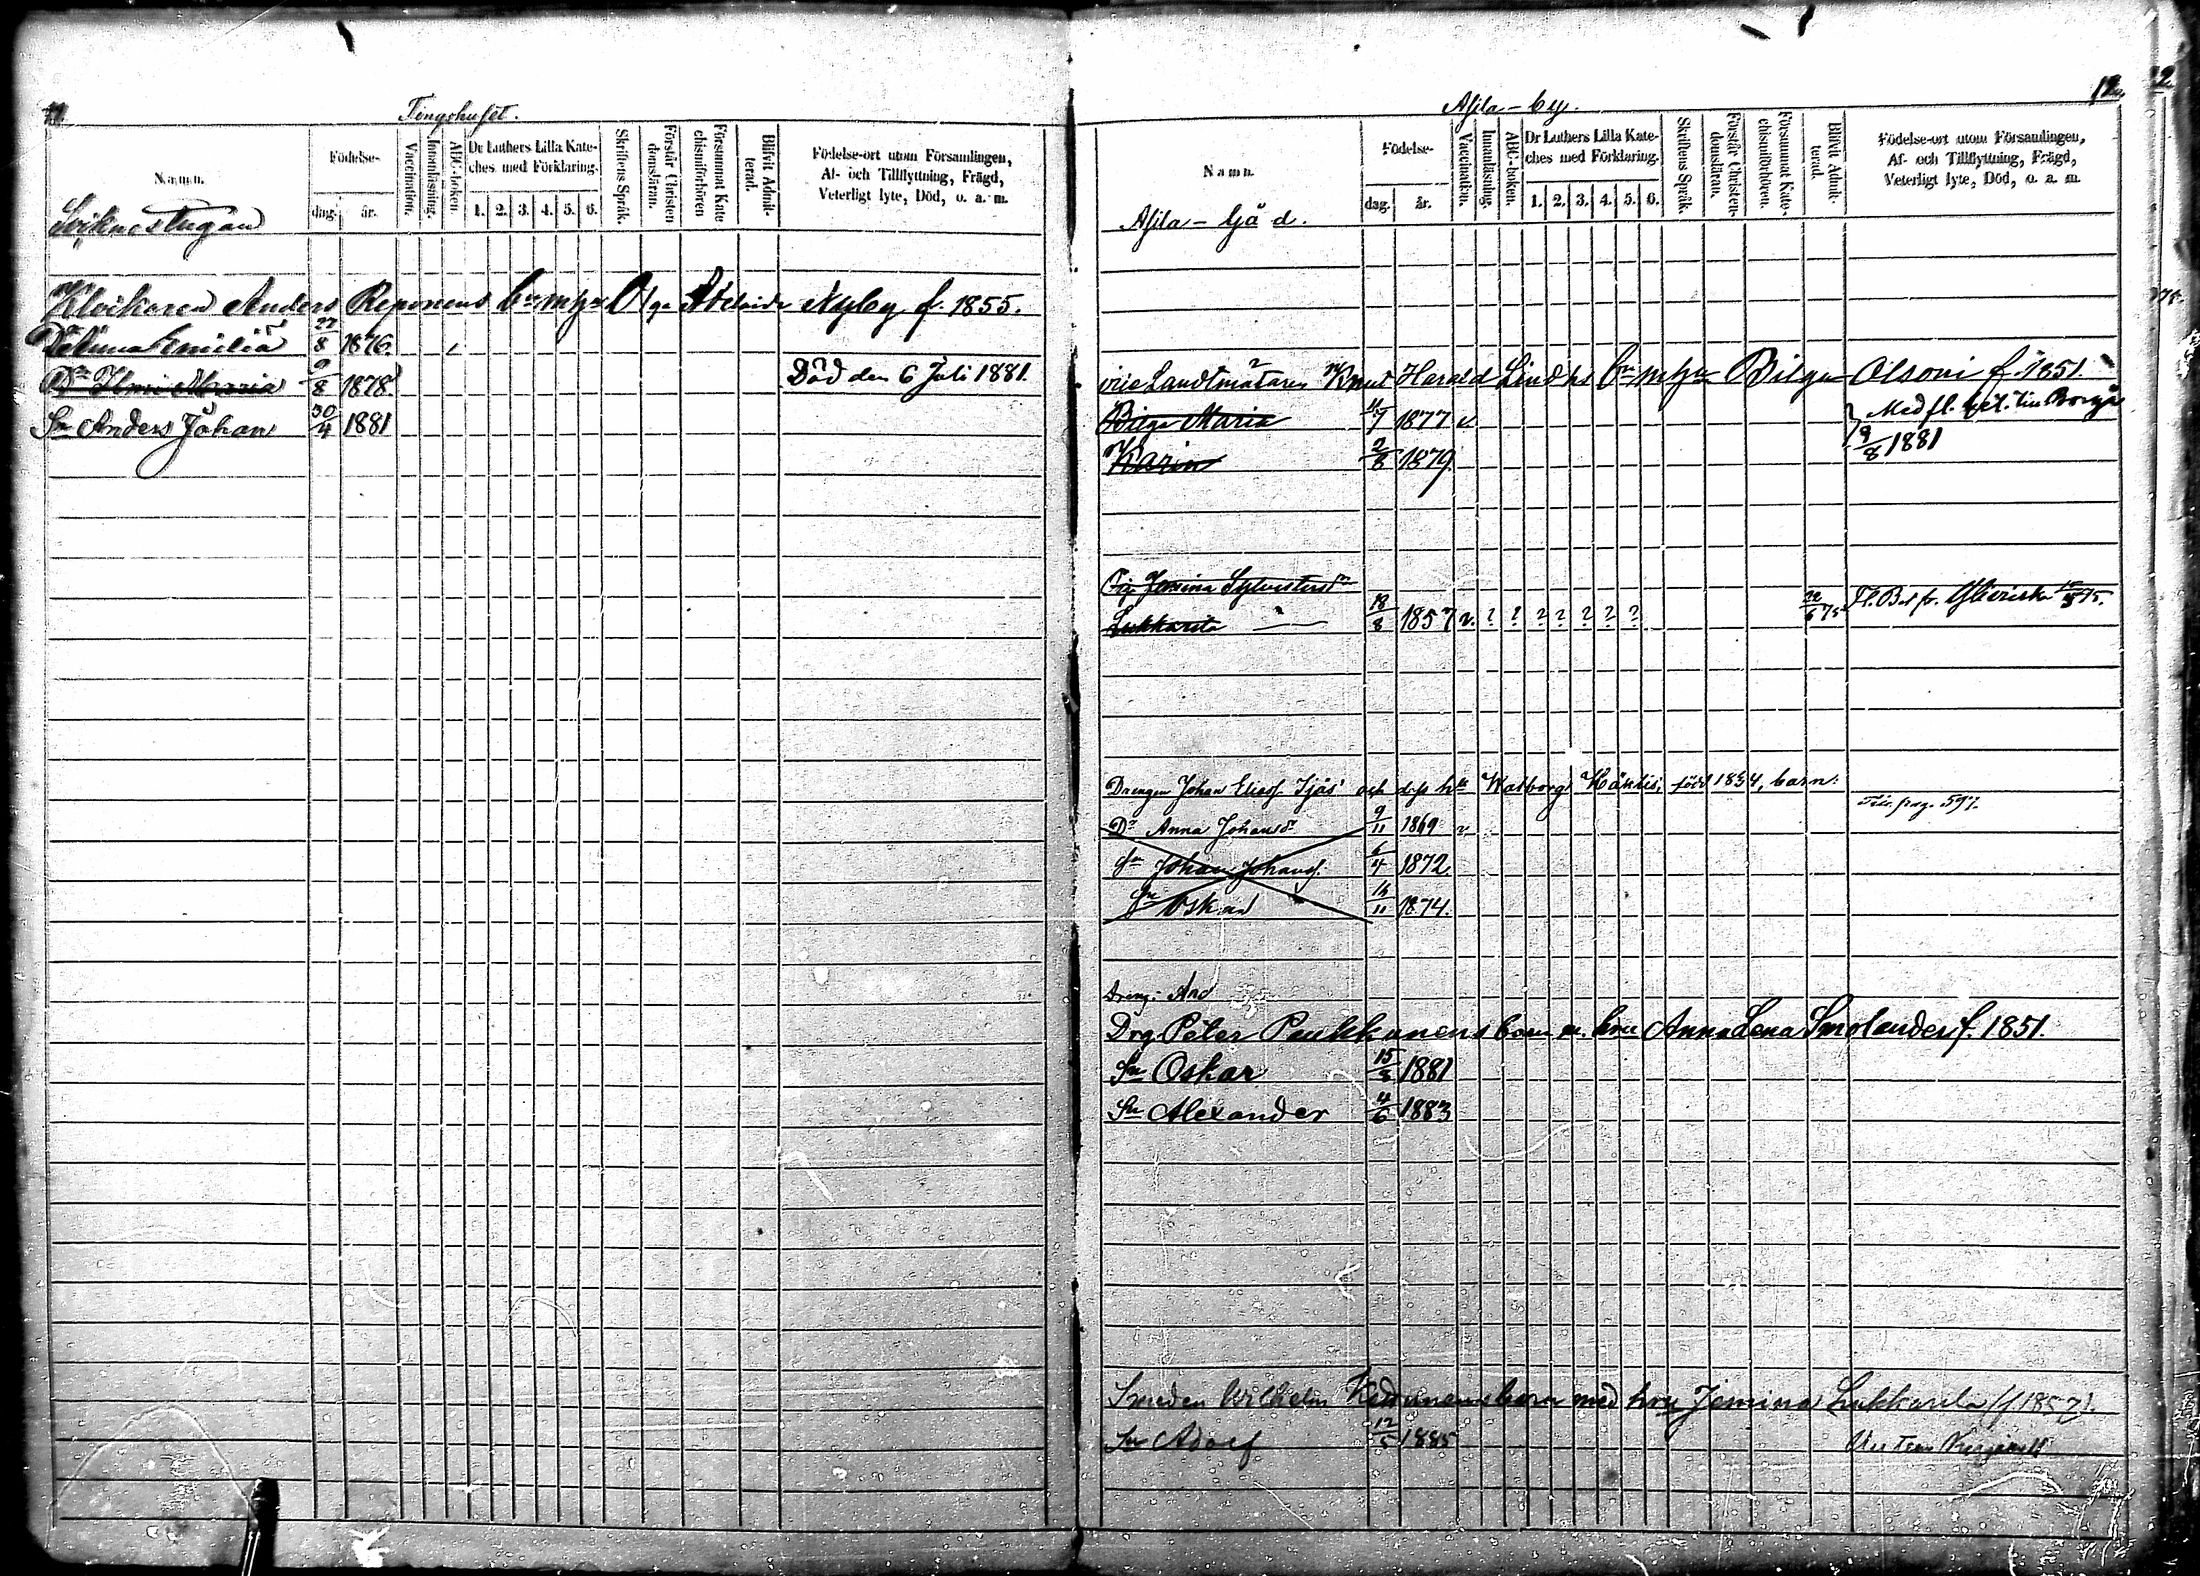 Tingshuset.
Namn.
Födelse-
dag.
år.
Vaccination.
Innanläsning.
ABC-boken.
Dr Luthers Lilla Kate-
ches med Förklaring.
1. 2. 3. 4. 5. 6.
Skriftens Språk.
Förstår Christen
domsläran.
Försummat Kate
chismiförhören
Blifvit Admit-
terad.
Födelse-ort utom Församlingen,
Af- och Tillflyttning, Frägd,
Veterligt lyte, Död, o. a. m.
Klockaren Anders Reponens bn m hu Olga Adelaide Nyby f. 1855.
Emilia 27/8 1876.
Dr Ilmi Maria 9/8 1878 Död den 6 Juli 1881.
Sn Anders Johan 30/4 1881
12
Asila-by.
Namn.
Födelse-
dag.
år.
Vaccination.
Innanläsning.
ABC-boken.
Dr Luthers Lilla Kate-
ches med Förklaring.
1. 2. 3. 4. 5. 6.
Skriftens Språk.
Förstår Christen-
domsläran.
Försummat Kate-
chismiförhören.
Blifvit Admit-
terad.
Födelse-ort utom Församlingen,
Af- och Tillflyttning, Frägd,
Veterligt lyte, Död, o. a. m.
Asila-
vice Landtmätaren Knut Harald Lindhs bn m hu Olsoni f. 1851.
Maria 11/7 1877 v Med fl. bet. till Borgå
Karin 2/8 1879 9/8 1881
Jemina Sylvestersdr
Lukkarila 18/8 1857 v. ? ? ? ? ? ? ? 22/6 75
Drengen Johan Eliass. Ijäs' och dess hu Walborg född 1834, barn:
Dr Anna Johansdr 9/11 1869 v
Sn Johan Johanss. 6/4 1872
Sn Oskar 1874.
pag. 597.
Dreng. And
Drg Peter Paukkunens barn m. hru Anna Lena Smolander f. 1851.
Sn Oskar 15/8 1881
Sn Alexander 4/6 1883
Smeden Wilhelm barn med hru Jemina Lukkarila (f 1857).
Sn Adolf 12/5 1885